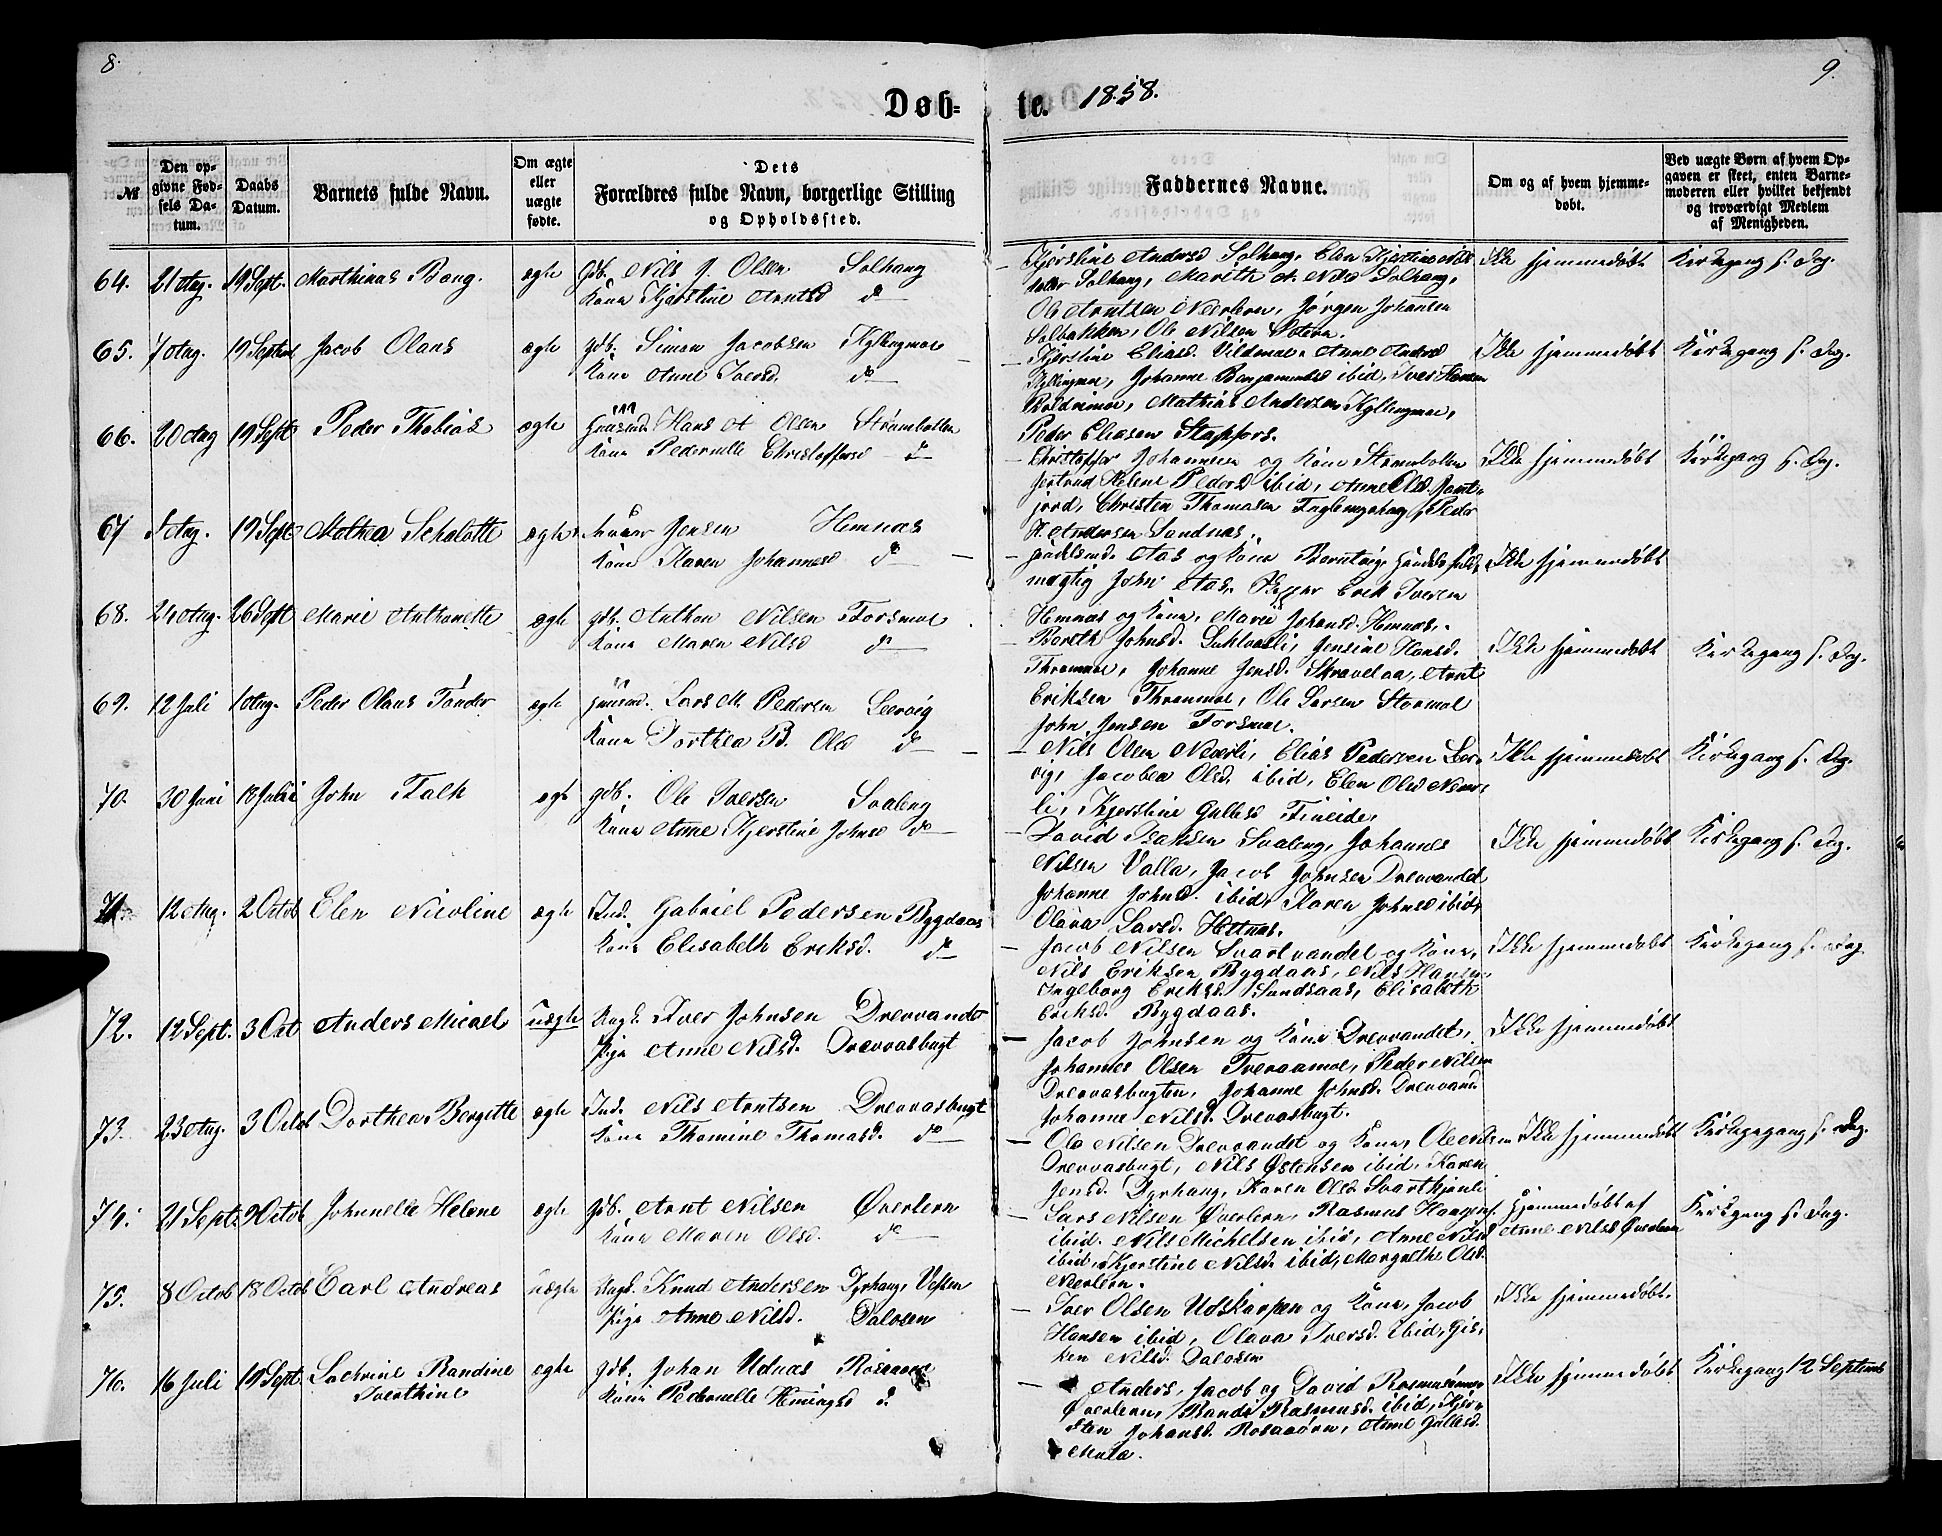 8.
9.
Døb-
te. 1858.
№
Den op-
givne Fød-
sels Da-
tum.
Daabs
Datum.
Barnets fulde Navn.
Om ægte
eller
uægte
fødte.
Dets
Forældres fulde Navn, borgerlige Stilling
og Opholdssted.
Faddernes Navne.
Om og af hvem hjemme-
døbt.
Ved uægte Børn af hvem Op-
gaven er skeet, enten Barne-
moderen eller hvilket bekjendt
og troværdigt Medlem
af Menigheden.
64. 21 Aug. 19 Sept. Marthinus Bang. ægte Gdb. Nils J. Olsen Solhaug
Kone Kjerstine Arntsd do
Kjerstine Andersd Solhaug, Elen Kjerstine Nils
datter Solhaug, Mareth A. Nilsd Solhaug,
Ole Arntsen Nerlern, Jørgen Johansen
Solbakken, Ole Nilsen
Ikke hjemmedøbt Kirkegang s. Dag.
65. 7 Aug. 19 Septemb Jacob Olaus ægte gdb. Simon Jacobsen Kyllingmoe
Kone Anne Iversd. do
Kjerstine Eliasd. Vildmoe, Anne Andersd
Kyllingmoe, Johanne Benjaminsd ibid, Iver Hansen
Boldermoe, Mathias Andersen Kyllingmoe,
Peder Eliasen Stapfors.
Ikke hjemmedøbt Kirkegang s. Dag.
66. 20 Aug 19 Sept Peder Thobias ægte Huusmd. Hans A Olsen Strømbotten
Kone Pedernelle Christoffersd do
Christopfer Johannesen og Kone Strømbotten
Jertrud Helene Pedersd ibid, Anne Olsd. Jamt-
jord, Christen Thomasen Fuglengehaug, Peder
A. Andersen Sandnæs.
Ikke hjemmedøbt Kirkegang s. Dag.
67 5 Aug. 19 Sept Mathea Scholotte ægte Jensen Hemnæs
Kone Karen Johannesd do
Handelsmd. Aas og Kone Handelsfuld-
mægtig John Aas, Skipper Erik Iversen
Hemnæs og Kone, Marie Johansd. Hemnæs.
Ikke hjemmedøbt
68. 24 Aug. 26 Sept Marie Anthonette ægte gdb. Anthon Nilsen Forsmoe
Kone Maren Nilsd do
Bereth Johnsd. Luktvasli, Jensine Hansd.
Thrommoe, Johanne Jensd. Skravelaa, Arnt
Eriksen Thronmoe, Ole Larsen Stormoe
John Jensen Forsmoe.
Ikke hjemmedøbt Kirkegang s. Dag.
69. 12 Juli 1 Aug. Peder Olaus Tønder ægte Huusmd. Lars M. Pedersen Leervig
Kone Dorthea B. Olsd do
Nils Olsen Neverli, Elias Pedersen Leer-
vig, Jacobea Olsd. ibid, Elen Olsd Never-
li, Kjerstine Gullesd Fineide.
Ikke hjemmedøbt Kirkegang s. Dag.
70. 30 Juni 18 Juli John Falk ægte gdb. Ole Iversen Svaleng
Kone Anne Kjerstine Johnsd do
David Isaksen Svaleng, Johannes
Nilsen Valla, Jacob Johnsen Drevvandet,
Johanne Johnsd. ibid, Karen Johnsd ibid,
Olava Larsd. Hetnæs.
Ikke hjemmedøbt Kirkegang s. Dag.
71. 12 Aug. 2 Octob Elen Nicoline ægte Ind. Gabriel Pedersen Bygdaas
Kone Elisabeth Eriksd. do
Jacob Nilsen Svartvandet og Kone,
Nils Eriksen Bygdaas, Nils Hansen
Ingeborg Eriksd. Sundsaas, Elisabeth
Eriksd. Bygdaas.
Ikke hjemmedøbt Kirkegang s. Dag.
72. 12 Sept. 3 Oct Anders Micael uægte Ungk. Iver Johnsen Drevvandet
Pige Anne Nilsd. Drevvasbugt
Jacob Johnsen og Kone Drevvandet,
Johannes Olsen Tveraamoe, Peder Nilsen
Drevvasbugten, Johanne Johnsd. Drevvand
Johanne Nilsd. Drevvasbugt.
Ikke hjemmedøbt
73. 23 Aug. 3 Octob Dorthea Bergitte ægte Ind. Nils Arntsen Drevvasbugt
Kone Thomine Thomasd. do
Ole Nilsen Drevvandet og Kone, Ole
Drevvasbugt, Nils Østensen ibid, Karen
Jensd. Dyrhaug, Karen Olsd. Svartkjønli
Ikke hjemmedøbt Kirkegang s. Dag.
74. 21 Sept. Octob Johnnelle Helene ægte gdb. Arnt Nilsen Øverlern
Kone Maren Olsd. do
Lars Nilsen Øverlern, Rasmus Hansen
ibid. Nils Michelsen ibid, Anne Nilsd
ibid, Kjerstine Nilsd ibid, Margrethe Olsd
Nerlern.
Hjemmedøbt af
Anne Nilsd Øverlern
Kirkegang s. Dag.
75. 8 Octob 18 Octob Carl Andreas uægte Ungk. Knud Andersen Dyrhaug, Vefsen
Pige Anne Nilsd. Dalosen
Iver Olsen Udskarpen og Kone, Jacob
Hansen ibid, Olava Iversd. ibid, Gis-
ken Nilsd. Dalosen
Ikke hjemmedøbt.
76. 16 Juli 19 Sept. Lochrine Randine
Iverthine
ægte gdb. Johan Udnæs
Kone Pedernelle Hemingsd d.
Anders, Jacob og David Rasmusen
Øverlern, Randi Rasmusd. ibid, Kjer-
sten Johansd. Rosaaøren, Anne Gullesd.
Mula.
Ikke hjemmedøbt. Kirkegang 12 Septemb